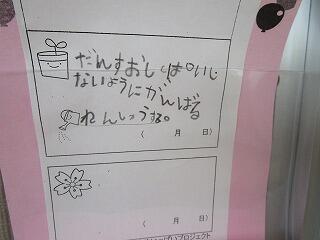 だんすおしっぱいし
ないようにがんばる
れんしゅうする。
( 月 日)
( 月 日)
ぱいプロジェクト